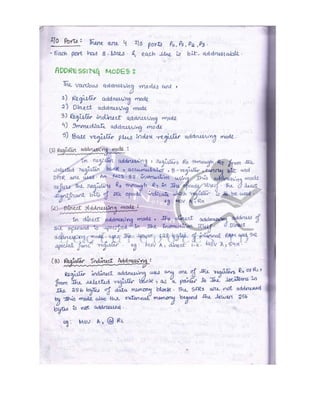 I/O Ports: There are 4 I/O ports P0, P1, P2, P3.
- Each port has 8-lines & each line is bit-addressable.
ADDRESSING MODES:
The various addressing modes are,
1) Register addressing mode
2) Direct addressing mode
3) Register indirect addressing mode
4) Immediate addressing mode
5) Base register plus index register addressing mode.
(1) Register addressing mode:
In register addressing, registers R0 through R7 from the
selected register bank, accumulator, B-register, carry bit and
DPTR are used. An MCS-51 instruction using this addressing mode
the registers R0 through R7 in the
significant bits of the opcode indicate which register is to be used.
eg: MOV A, Rn
(2) Direct Addressing mode:
In direct addressing mode, the direct address of
the operand is specified in the instruction itself. Direct
addressing mode uses the lower 128 bytes of internal RAM and the
special func register. eg: MOV A, direct i.e. MOV A,
(3) Register Indirect Addressing:
Register indirect addressing uses any one of the registers R0 or R1,
from the selected register block, as a pointer to the locations in
the 256 bytes of data memory block. The SFRs are not addressed
by this mode also the external memory beyond the lower 256
bytes is not addressed.
eg: MOV A, @